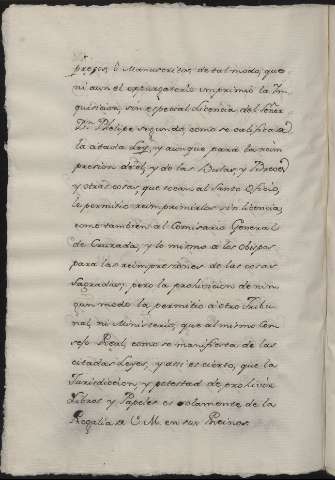 presos, ô Manuscritos de tal modo, que
ni aun el expurgatorio imprimiò la In-
quisicion, sin especial licencia del Señor
Dn. Phelipe segundo, como se califica de
la citada Ley, y aunque para la reim
presion de èl, y de las Bulas, y
y otras cosas, que tocan al Santo Oficio,
le permitio reimprimirlas sin licencia,
como tambien al Comisario General
de Cruzada, y lo mismo a los obispos
para las reimpresiones de las cosas
sagradas; pero la prohivicion de nin
gun modo la permitio a otro Tribu-
nal, ni Ministerio, que al mismo Con
sejo Real, como se manifiesta de las
citadas Leyes, y assi es cierto, que la
Jurisdiccion, y potestad de prohivir
Libros y Papeles es solamente de la
Regalia de V. M. en sus Reinos.